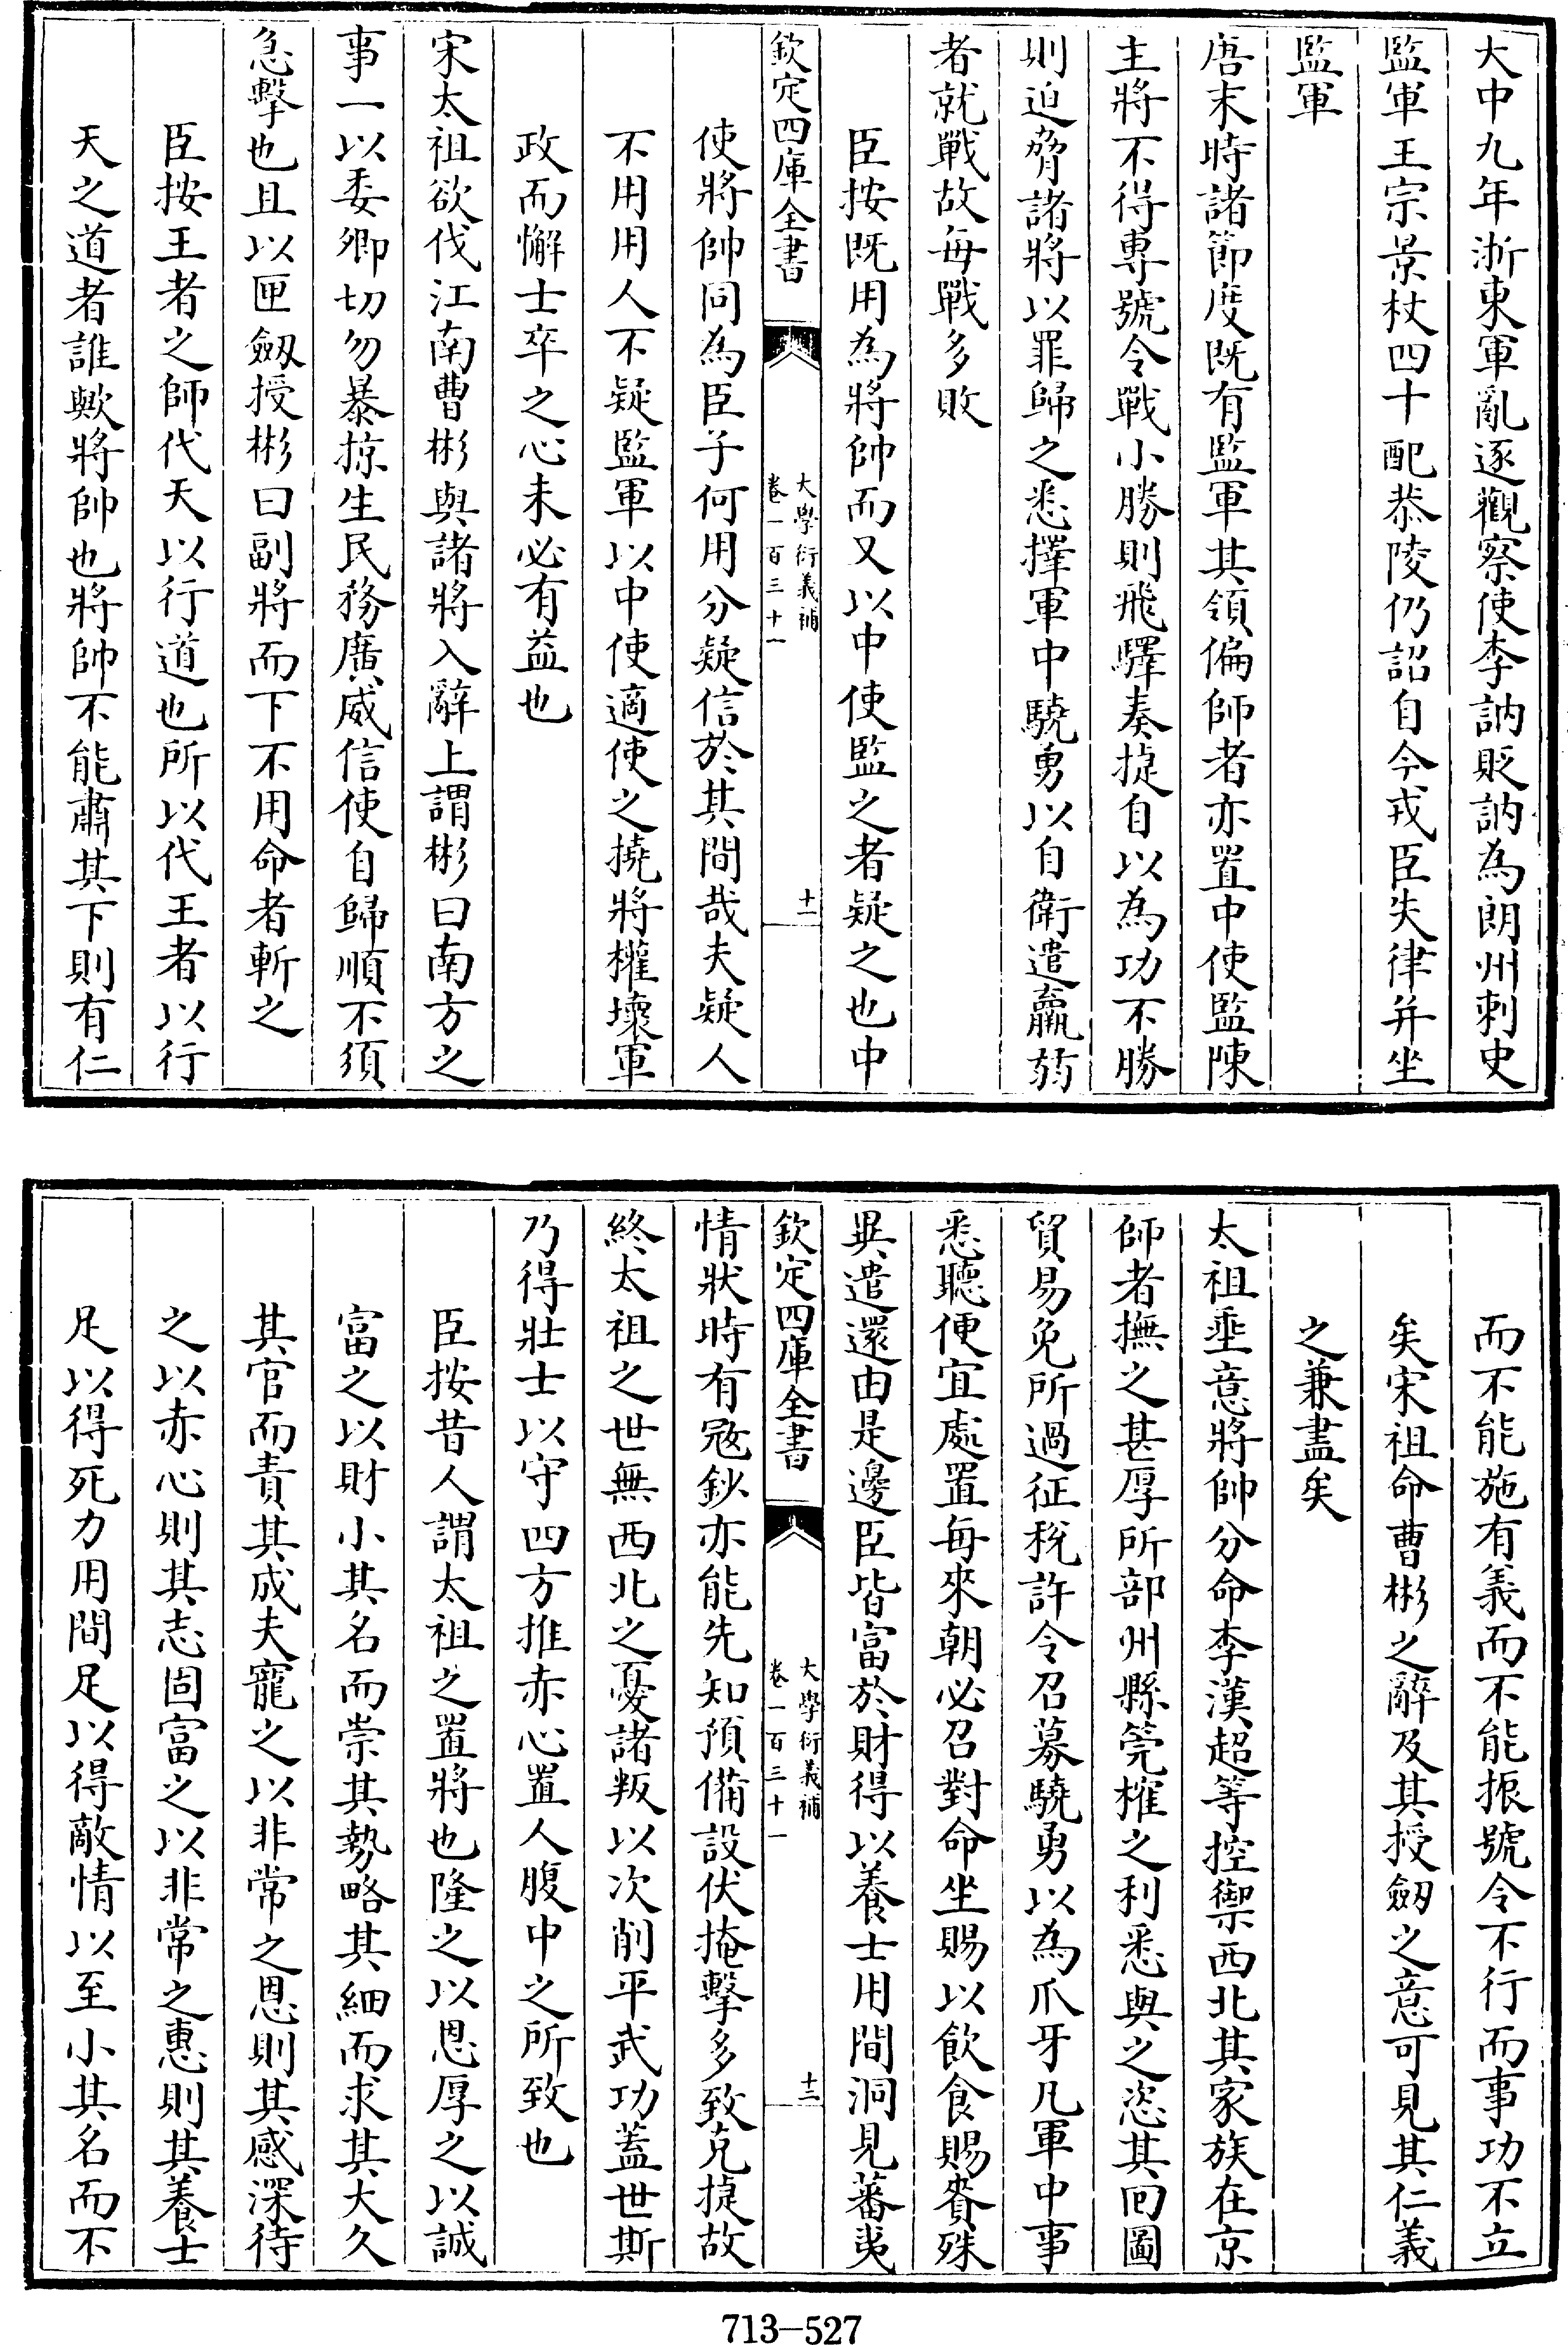 大中九年浙東軍亂逐觀察使李訥貶訥為朗州刺史
監軍王宗景杖四十配恭陵仍詔自今戎臣失律并坐
監軍
唐末時諸節度既有監軍其領偏師者亦置中使監陳
主將不得專號令戰小勝則飛驛奏捷自以為功不勝
則迫脅諸將以罪歸之悉擇軍中驍勇以自衛遣羸弱
者就戰故每戰多敗
臣按既用為將帥而又以中使監之者疑之也中
欽定四庫全書
大學衍義補
卷一百三十一
十一
使將帥同為臣子何用分疑信於其間哉夫疑人
不用用人不疑監軍以中使適使之撓將權壞軍
政而懈士卒之心未必有益也
宋太祖欲伐江南曹彬與諸將入辭上謂彬曰南方之
事一以委卿切勿暴掠生民務廣威信使自歸順不須
急擊也且以匣劔授彬曰副將而下不用命者斬之
臣按王者之師代天以行道也所以代王者以行
天之道者誰歟將帥也將帥不能肅其下則有仁
而不能施有義而不能振號令不行而事功不立
矣宋祖命曹彬之辭及其授劔之意可見其仁義
之兼盡矣
太祖垂意將帥分命李漢超等控禦西北其家族在京
師者撫之甚厚所部州縣筦榷之利悉與之恣其回圖
貿易免所過征稅許令召募驍勇以為爪牙凡軍中事
悉聽便宜處置每來朝必召對命坐賜以飲食賜賚殊
異遣還由是邊臣皆富於財得以養士用間洞見蕃夷
欽定四庫全書
大學衍義補
卷一百三十一
十二
情狀時有寇鈔亦能先知預備設伏掩擊多致克捷故
終太祖之世無西北之憂諸叛以次削平武功蓋世斯
乃得壯士以守四方推赤心置人腹中之所致也
臣按昔人謂太祖之置將也隆之以恩厚之以誠
富之以財小其名而崇其勢略其細而求其大久
其官而責其成夫寵之以非常之恩則其感深待
之以赤心則其志固富之以非常之惠則其養士
足以得死力用間足以得敵情以至小其名而不
713-527